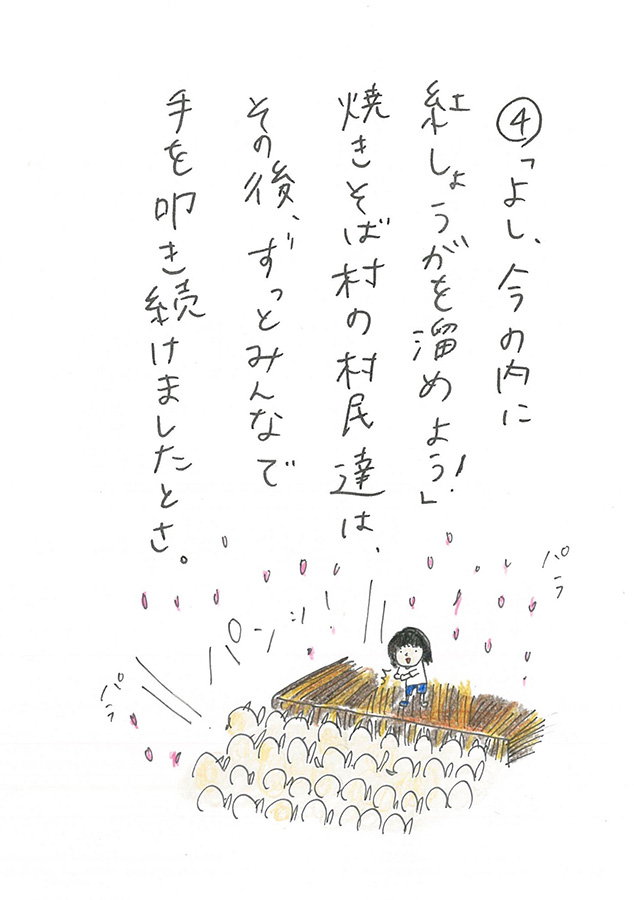 ④「よし、今の内に
紅しょうがを溜めよう！」
焼きそば村の村民達は、
その後、ずっとみんなで
手を叩き続けましたとさ。
パラ
パンッ！
パラ